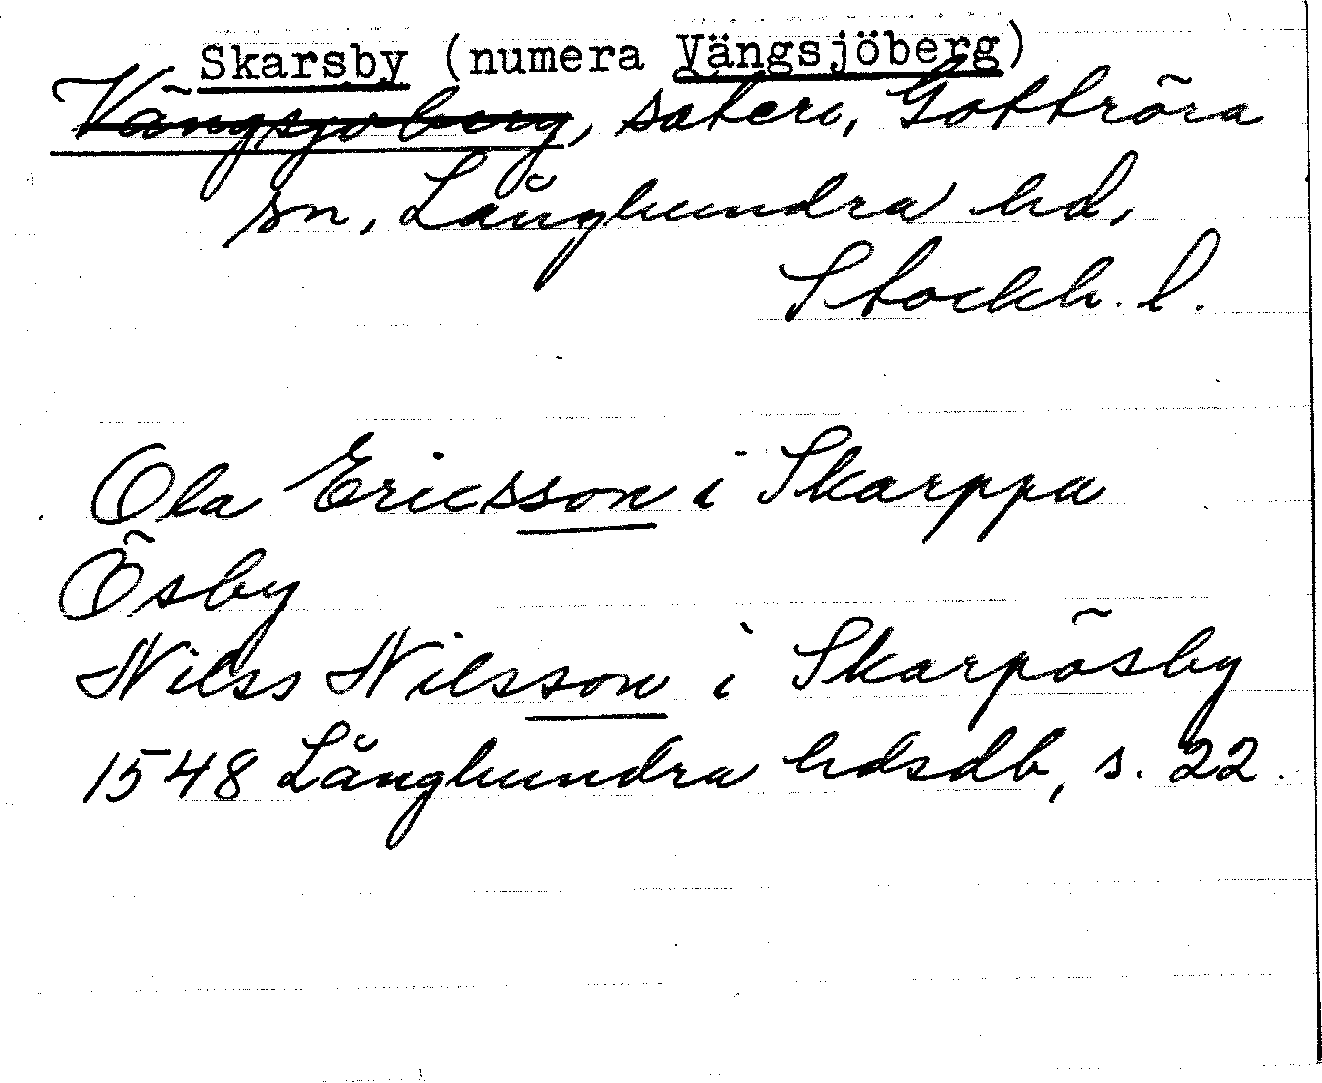 Skarsby (numera Vängsjöberg)
Vängsjöberg, säteri, Gottröra
sn, Långhundra hd,
Stockh. l.
Ola Ericsson i Skarppa
Ösby
Nilss Nilsson i Skarpösby
1548 Långhundra hdsdb, s. 22.